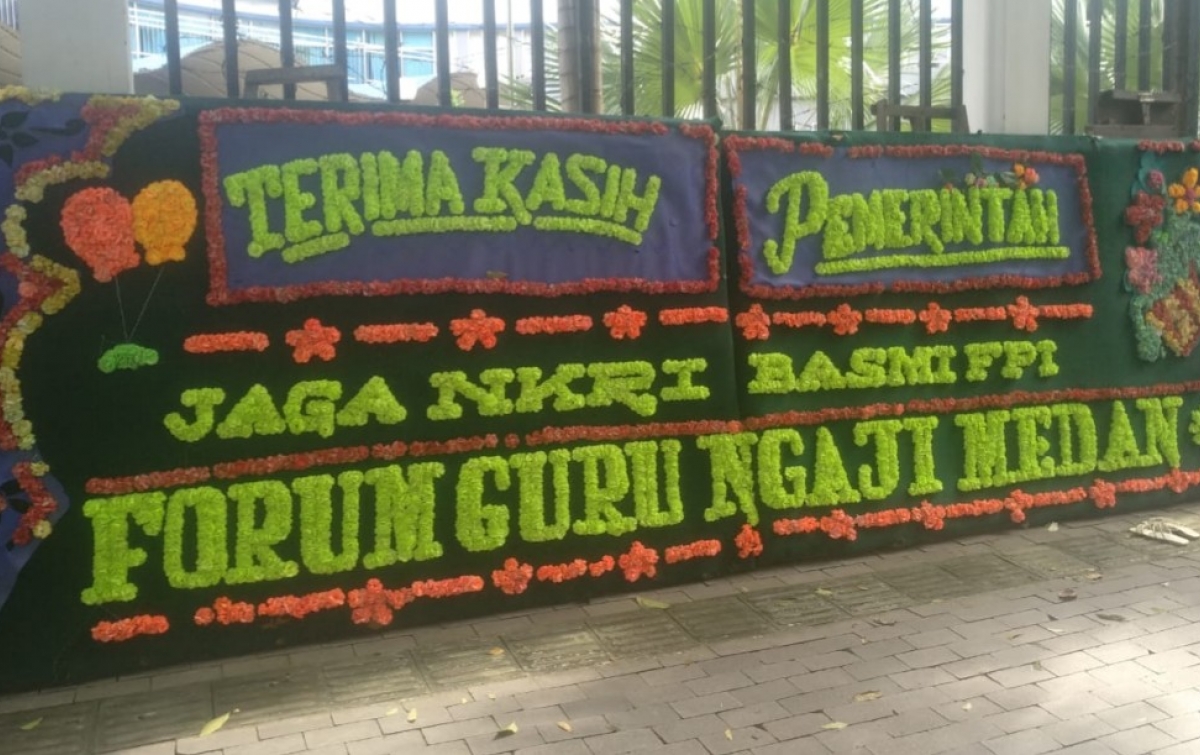 TERIMA KASIH PEMERINTAH
JAGA NKRI BASMI FPI
FORUM GURU NGAJI MEDAN